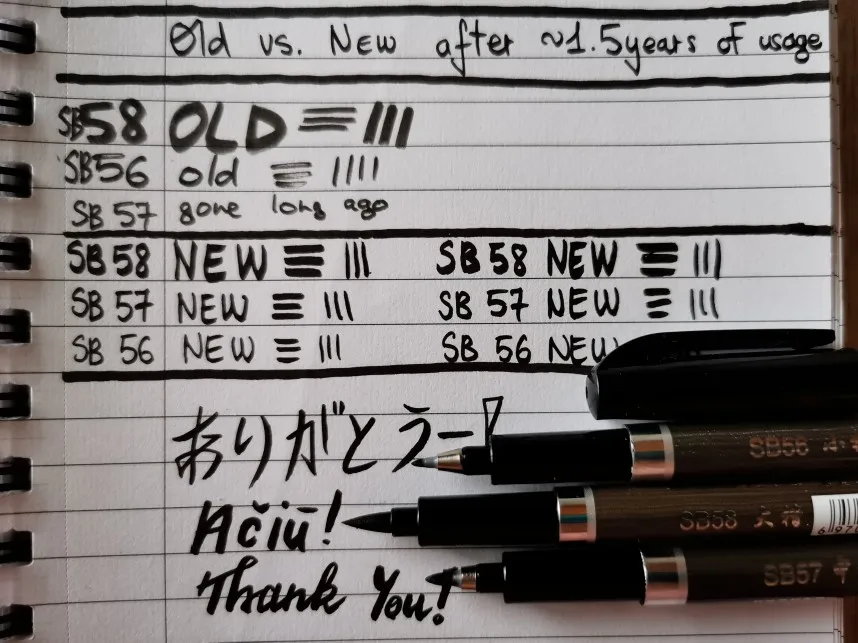 Old vs. New after ~1.5years of usage
SB58 OLD
SB56 old
SB 57 gone long ago
SB 58 NEW SB 58 NEW
SB 57 NEW SB 57 NEW
SB 56 NEW SB 56 NEW
ありがとうー!
SB56 小
Ačiū!
SB58 大楷
Thank You!
SB57 中